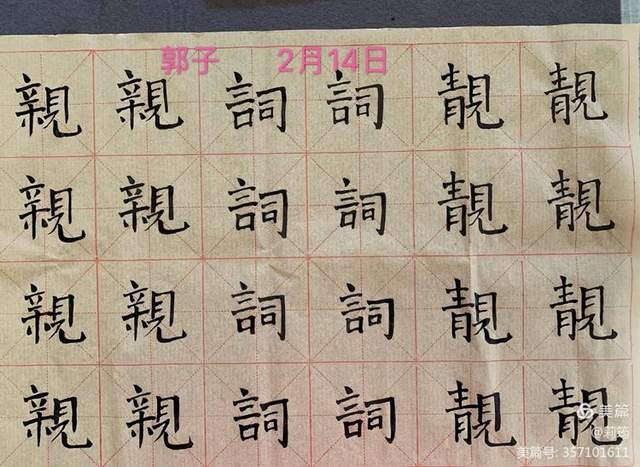 郭子 2月14日
親親詞詞靚靚
親親詞詞靚靚
親親詞詞靚靚
親親詞詞靚靚
美篇
@莉筠
美篇号: 357101611